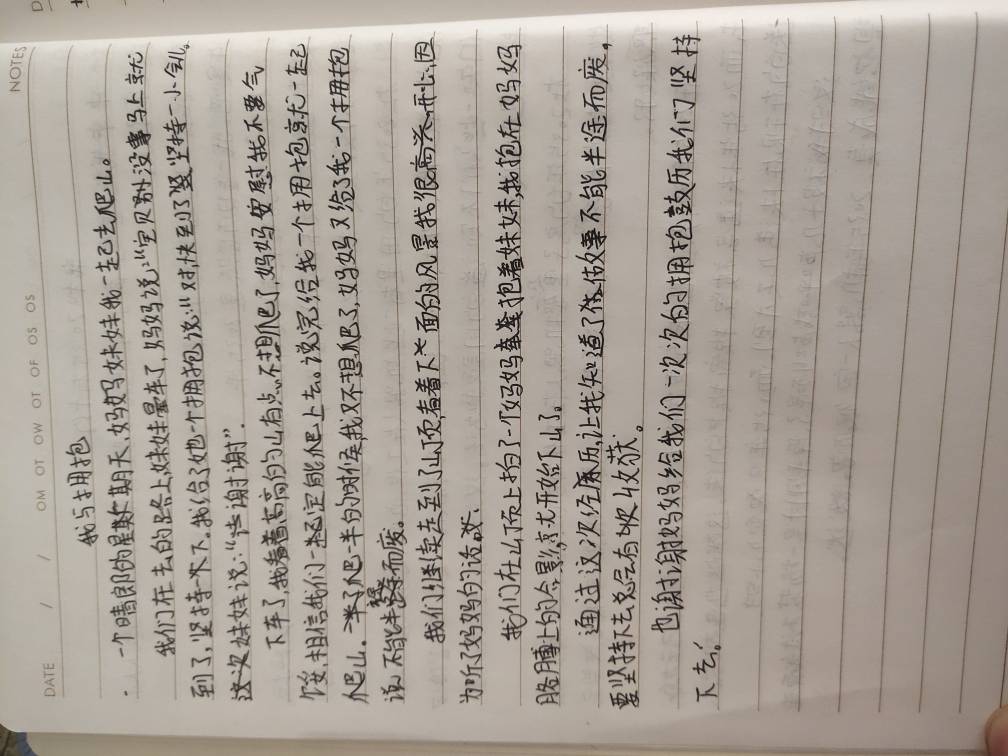 NOTES
DATE / / OM OT OW OT OF OS OS
我与拥抱
一个晴郎的星期天,妈妈妹妹我一起去爬山。
我们在去的路上妹妹晕车了,妈妈说:“宝贝别没事马上就
到了,坚持一下。我给了她一个拥抱说:“对,快到了坚持一小会儿。
这次妹妹说:“谢谢”.
下车了,我看着高高的山有点不想爬了,妈妈安慰我不要气
馁,相信我们一定能爬上去。说完给我一个拥抱就一起
爬山。爬一半的时候我又不想爬了,妈妈又给了我一个拥抱
说不能半途而废。
我们继续走到了山顶看着下面的风景我很高兴开心,因
为听了妈妈的话。
我们在山顶上拍了一个妈妈抱着妹妹,我抱在妈妈
胳膊上的合影,就开始下山了。
通过这次经历,让我知道了做事不能半途而废,
要坚持下去总会有收获。
也谢谢妈妈给我们一次次的拥抱鼓历我们坚持
下去!